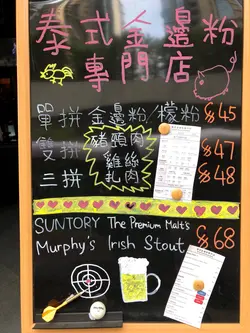 泰式金邊粉
專門店
單拼 金邊粉/檬粉 $45
雙拼 豬頸肉 $47
雞絲
三拼 扎肉 $48
SUNTORY The Premium Malt's
Murphy's Irish Stout $68